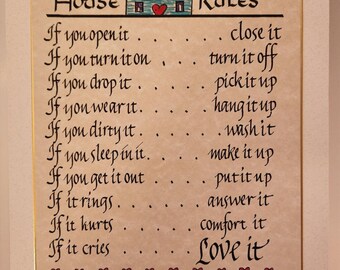 House Rules
If you open it . . . . . . . close it
If you turn it on . . . . turn it off
If you drop it . . . . . pick it up
If you wear it . . . . . hang it up
If you dirty it . . . . . . wash it
If you sleep in it . . . . make it up
If you get it out . . . . put it up
If it rings . . . . . . answer it
If it hurts . . . . . comfort it
If it cries . . . . . Love it